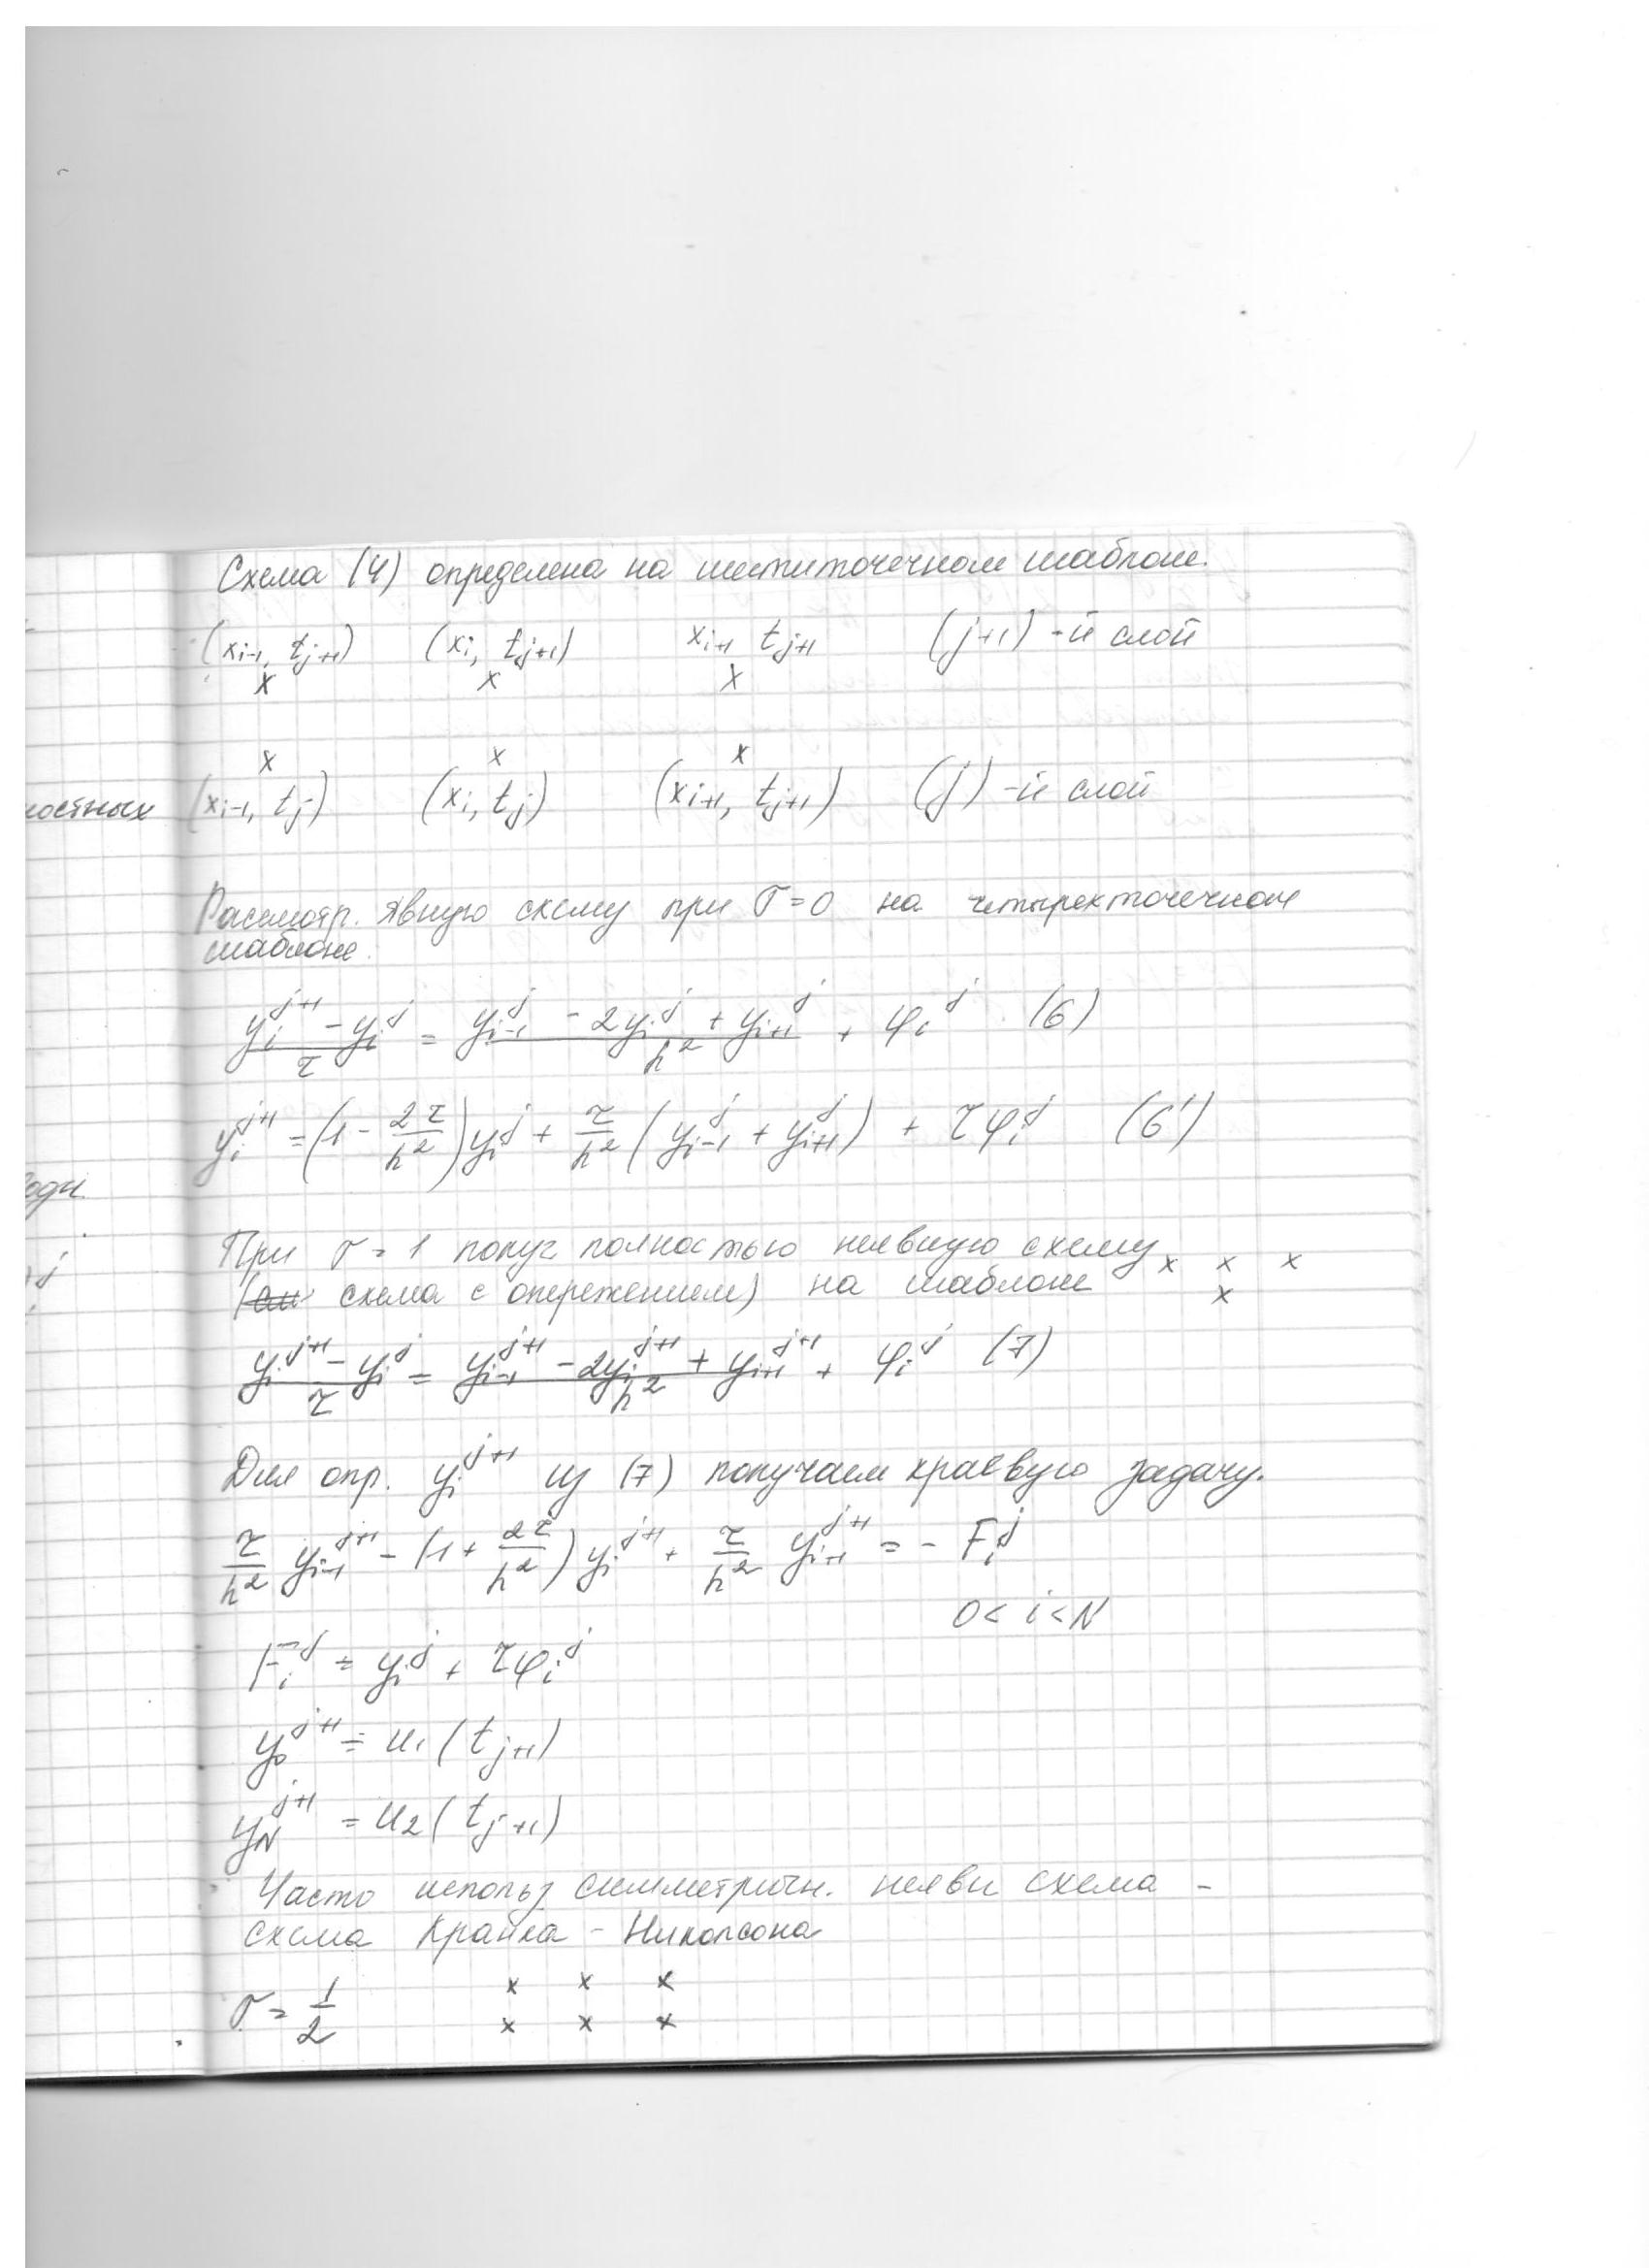 Схема (4) определена на шеститочечном шаблоне.
(x_{i-1}, t_{j+1}) (x_i, t_{j+1}) x_{i+1} t_{j+1} (j+1) -й слой
x x x
x x x
(x_{i-1}, t_j) (x_i, t_j) (x_{i+1}, t_{j+1}) (j) -й слой
ностных
Рассмотр. явную схему при σ=0 на четырехточечном
шаблоне.
\frac{y_i^{j+1} - y_i^j}{τ} = \frac{y_{i-1}^j - 2y_i^j + y_{i+1}^j}{h^2} + φ_i^j (6)
y_i^{j+1} = (1 - \frac{2τ}{h^2}) y_i^j + \frac{τ}{h^2} (y_{i-1}^j + y_{i+1}^j) + τφ_i^j (6')
При σ = 1 получ полностью неявную схему x x x
(схема с опережением) на шаблоне x
\frac{y_i^{j+1} - y_i^j}{τ} = \frac{y_{i-1}^{j+1} - 2y_i^{j+1} + y_{i+1}^{j+1}}{h^2} + φ_i^j (7)
Для опр. y_i^{j+1} из (7) получаем краевую задачу.
\frac{τ}{h^2} y_{i-1}^{j+1} - (1 + \frac{2τ}{h^2}) y_i^{j+1} + \frac{τ}{h^2} y_{i+1}^{j+1} = - F_i^j
0 < i < N
F_i^j = y_i^j + τφ_i^j
y_0^{j+1} = u_1 (t_{j+1})
y_N^{j+1} = u_2 (t_{j+1})
Часто использ симметричн. неявн схема -
схема Кранка - Николсона
σ = \frac{1}{2} x x x
x x x